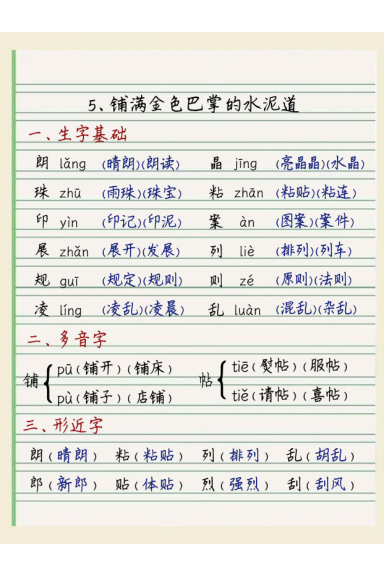 5、铺满金色巴掌的水泥道
一、生字基础
朗 lǎng (晴朗)(朗读) 晶 jīng (亮晶晶)(水晶)
珠 zhū (雨珠)(珠宝) 粘 zhān (粘贴)(粘连)
印 yìn (印记)(印泥) 案 àn (图案)(案件)
展 zhǎn (展开)(发展) 列 liè (排列)(列车)
规 guī (规定)(规则) 则 zé (原则)(法则)
凌 líng (凌乱)(凌晨) 乱 luàn (混乱)(杂乱)
二、多音字
铺 { pū(铺开)(铺床) 帖 { tiē(熨帖)(服帖)
pù(铺子)(店铺) tiě(请帖)(喜帖)
三、形近字
朗(晴朗) 粘(粘贴) 列(排列) 乱(胡乱)
郎(新郎) 贴(体贴) 烈(强烈) 刮(刮风)